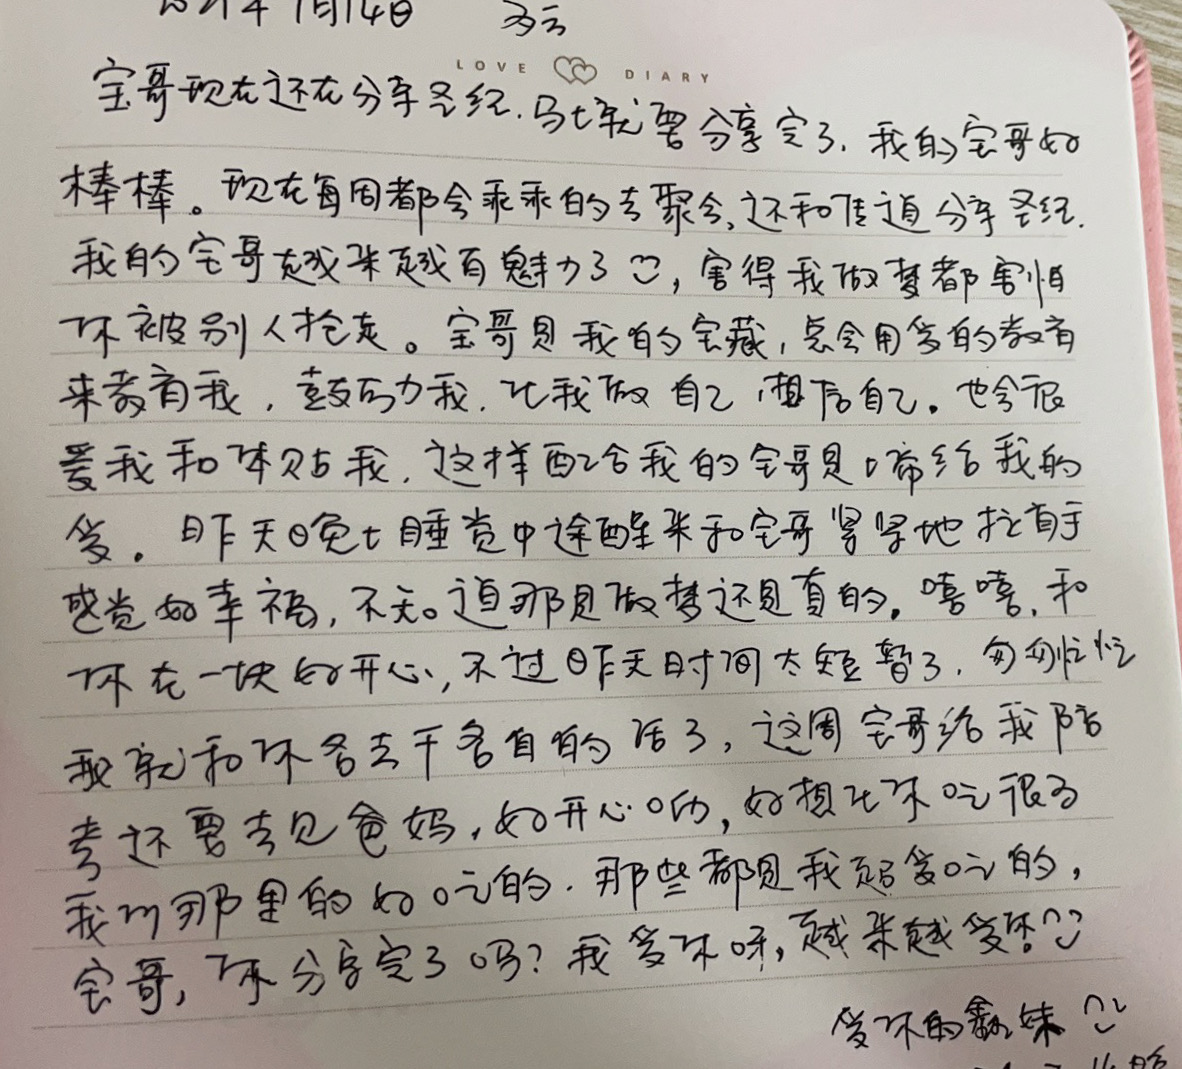 年1月14日 多云
LOVE DIARY
宝哥现在还在分享圣经.马上就要分享完了.我的宝哥好
棒棒。现在每周都会乖乖的去聚会,还和传道分享圣经.
我的宝哥越来越有魅力了,害得我做梦都害怕
你被别人抢走。宝哥是我的宝藏,总会用爱的教育
来教育我.鼓励我.让我做自己相信自己.也会很
爱我和体贴我.这样配合我的宝哥是上帝给我的
爱。昨天晚上睡觉中途醒来和宝哥紧紧地拉着手
感觉好幸福,不知道那是做梦还是真的.嘻嘻.和
你在一块好开心,不过昨天时间太短暂了.匆匆忙忙
我就和你各去干各自的活了,这周宝哥给我陪
考还要去见爸妈.好开心呦,好想让你吃很多
我们那里的好吃的.那些都是我超爱吃的,
宝哥,你分享完了吗?我爱你呀,越来越爱你
爱你的鑫妹